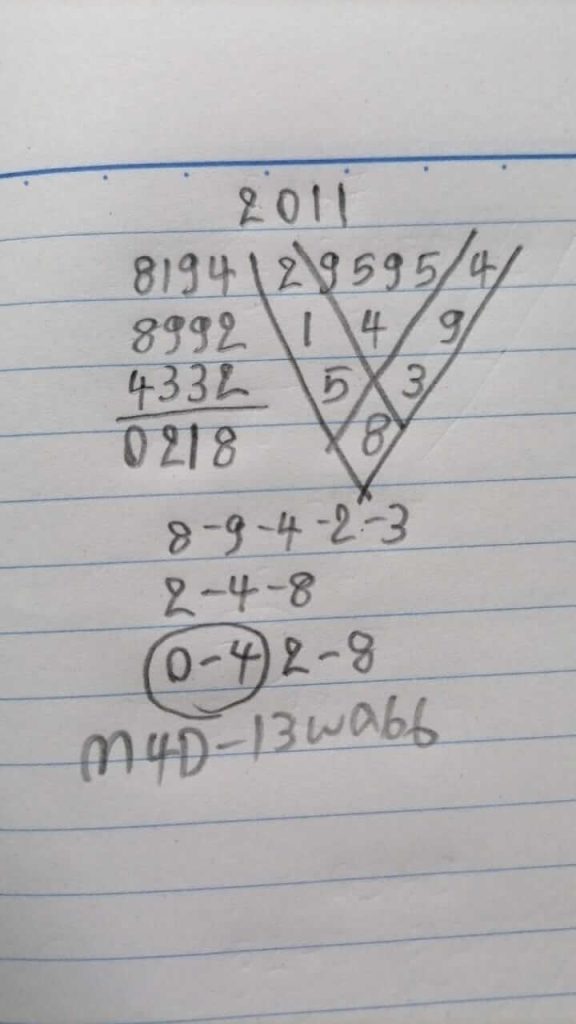 2011
8194 2 9595 4
8992 1 4 9
4332 5 3
0218 8
8-9-4-2-3
2-4-8
0-4 2-8
M4D-13wabb